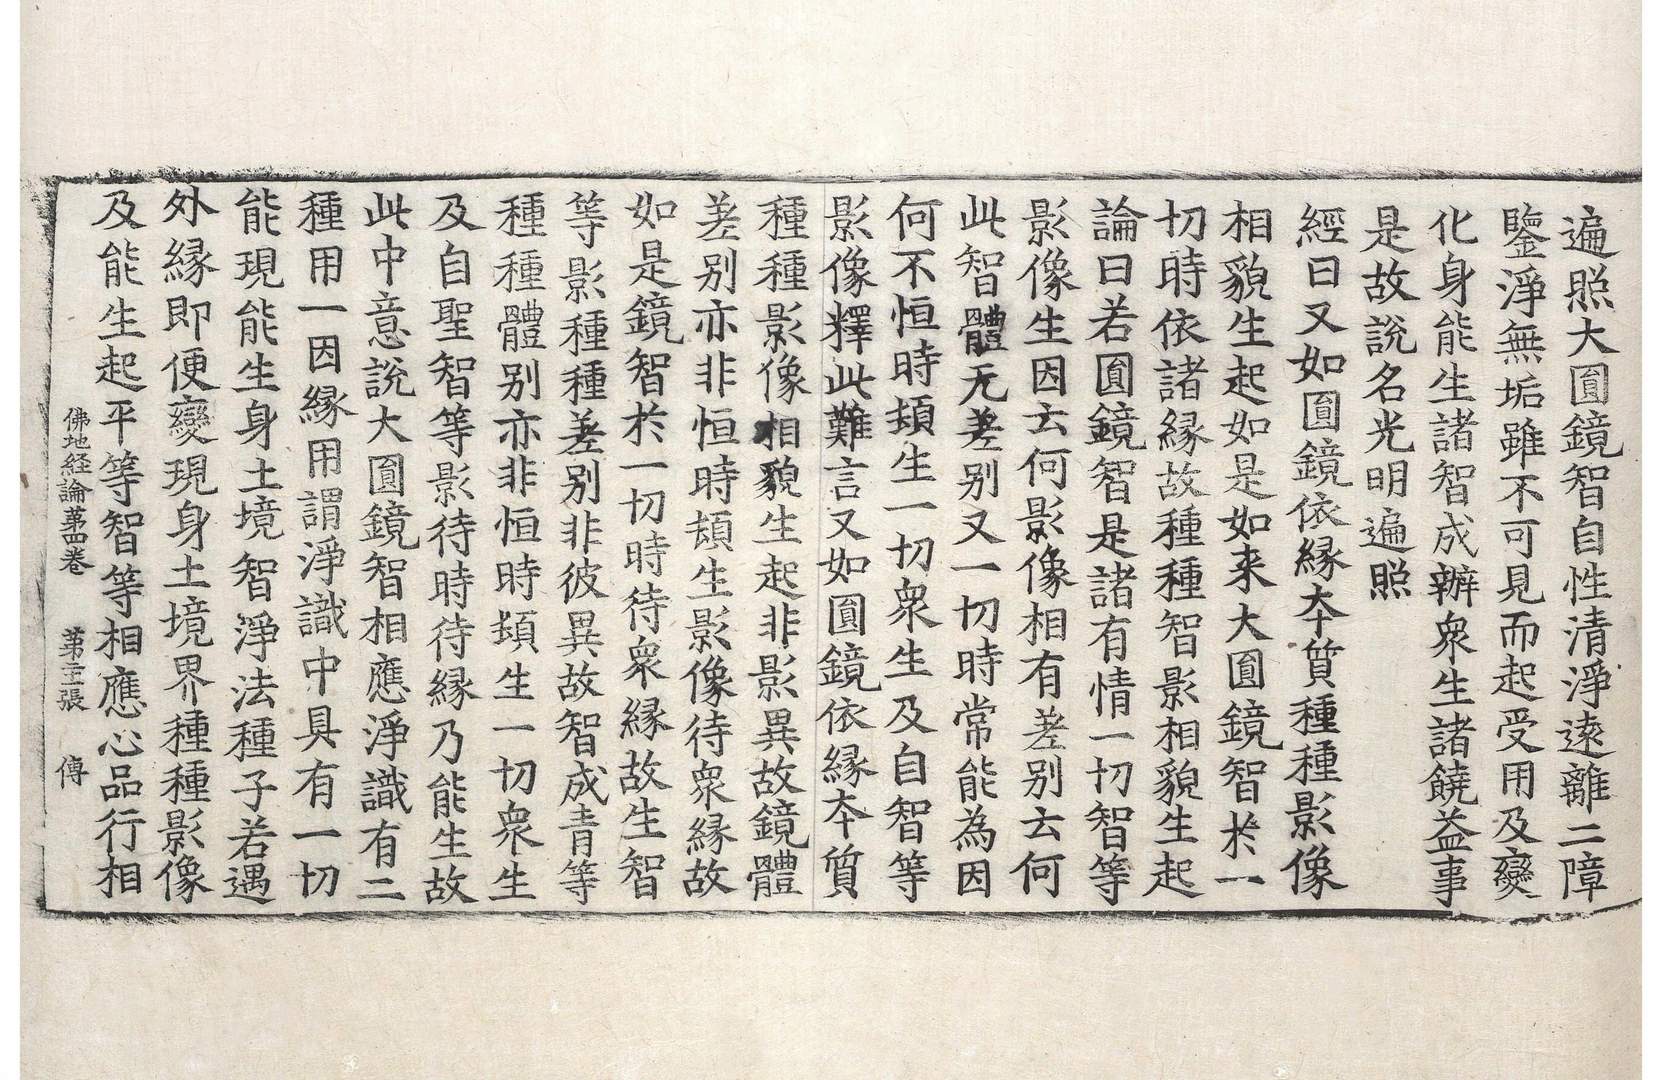 遍照大圓鏡智自性清淨遠離二障
鑒淨無垢雖不可見而起受用及變
化身能生諸智成辦衆生諸饒益事
是故說名光明遍照
經曰又如圓鏡依縁夲質種種影像
相貌生起如是如来大圓鏡智扵一
切時依諸縁故種種智影相貌生起
論曰若圓鏡智是諸有情一切智等
影像生因云何影像相有差别云何
此智體无差别又一切時常能為因
何不恒時頓生一切衆生及自智等
影像釋此難言又如圓鏡依縁夲質
種種影像相貌生起非影異故鏡體
差别亦非恒時頓生影像待衆縁故
如是鏡智扵一切時待衆縁故生智
等影種種差别非彼異故智成青等
種種體别亦非恒時頓生一切衆生
及自聖智等影待時待縁乃能生故
此中意說大圓鏡智相應淨識有二
種用一因縁用謂淨識中具有一切
能現能生身土境智淨法種子若遇
外縁即便變現身土境界種種影像
及能生起平等智等相應心品行相
佛地経論苐四卷 苐三張 傳